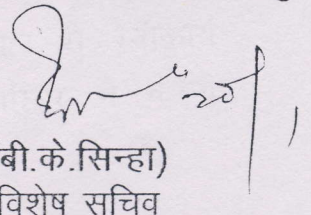 बी.के.सिन्हा)
विशेष सचिव